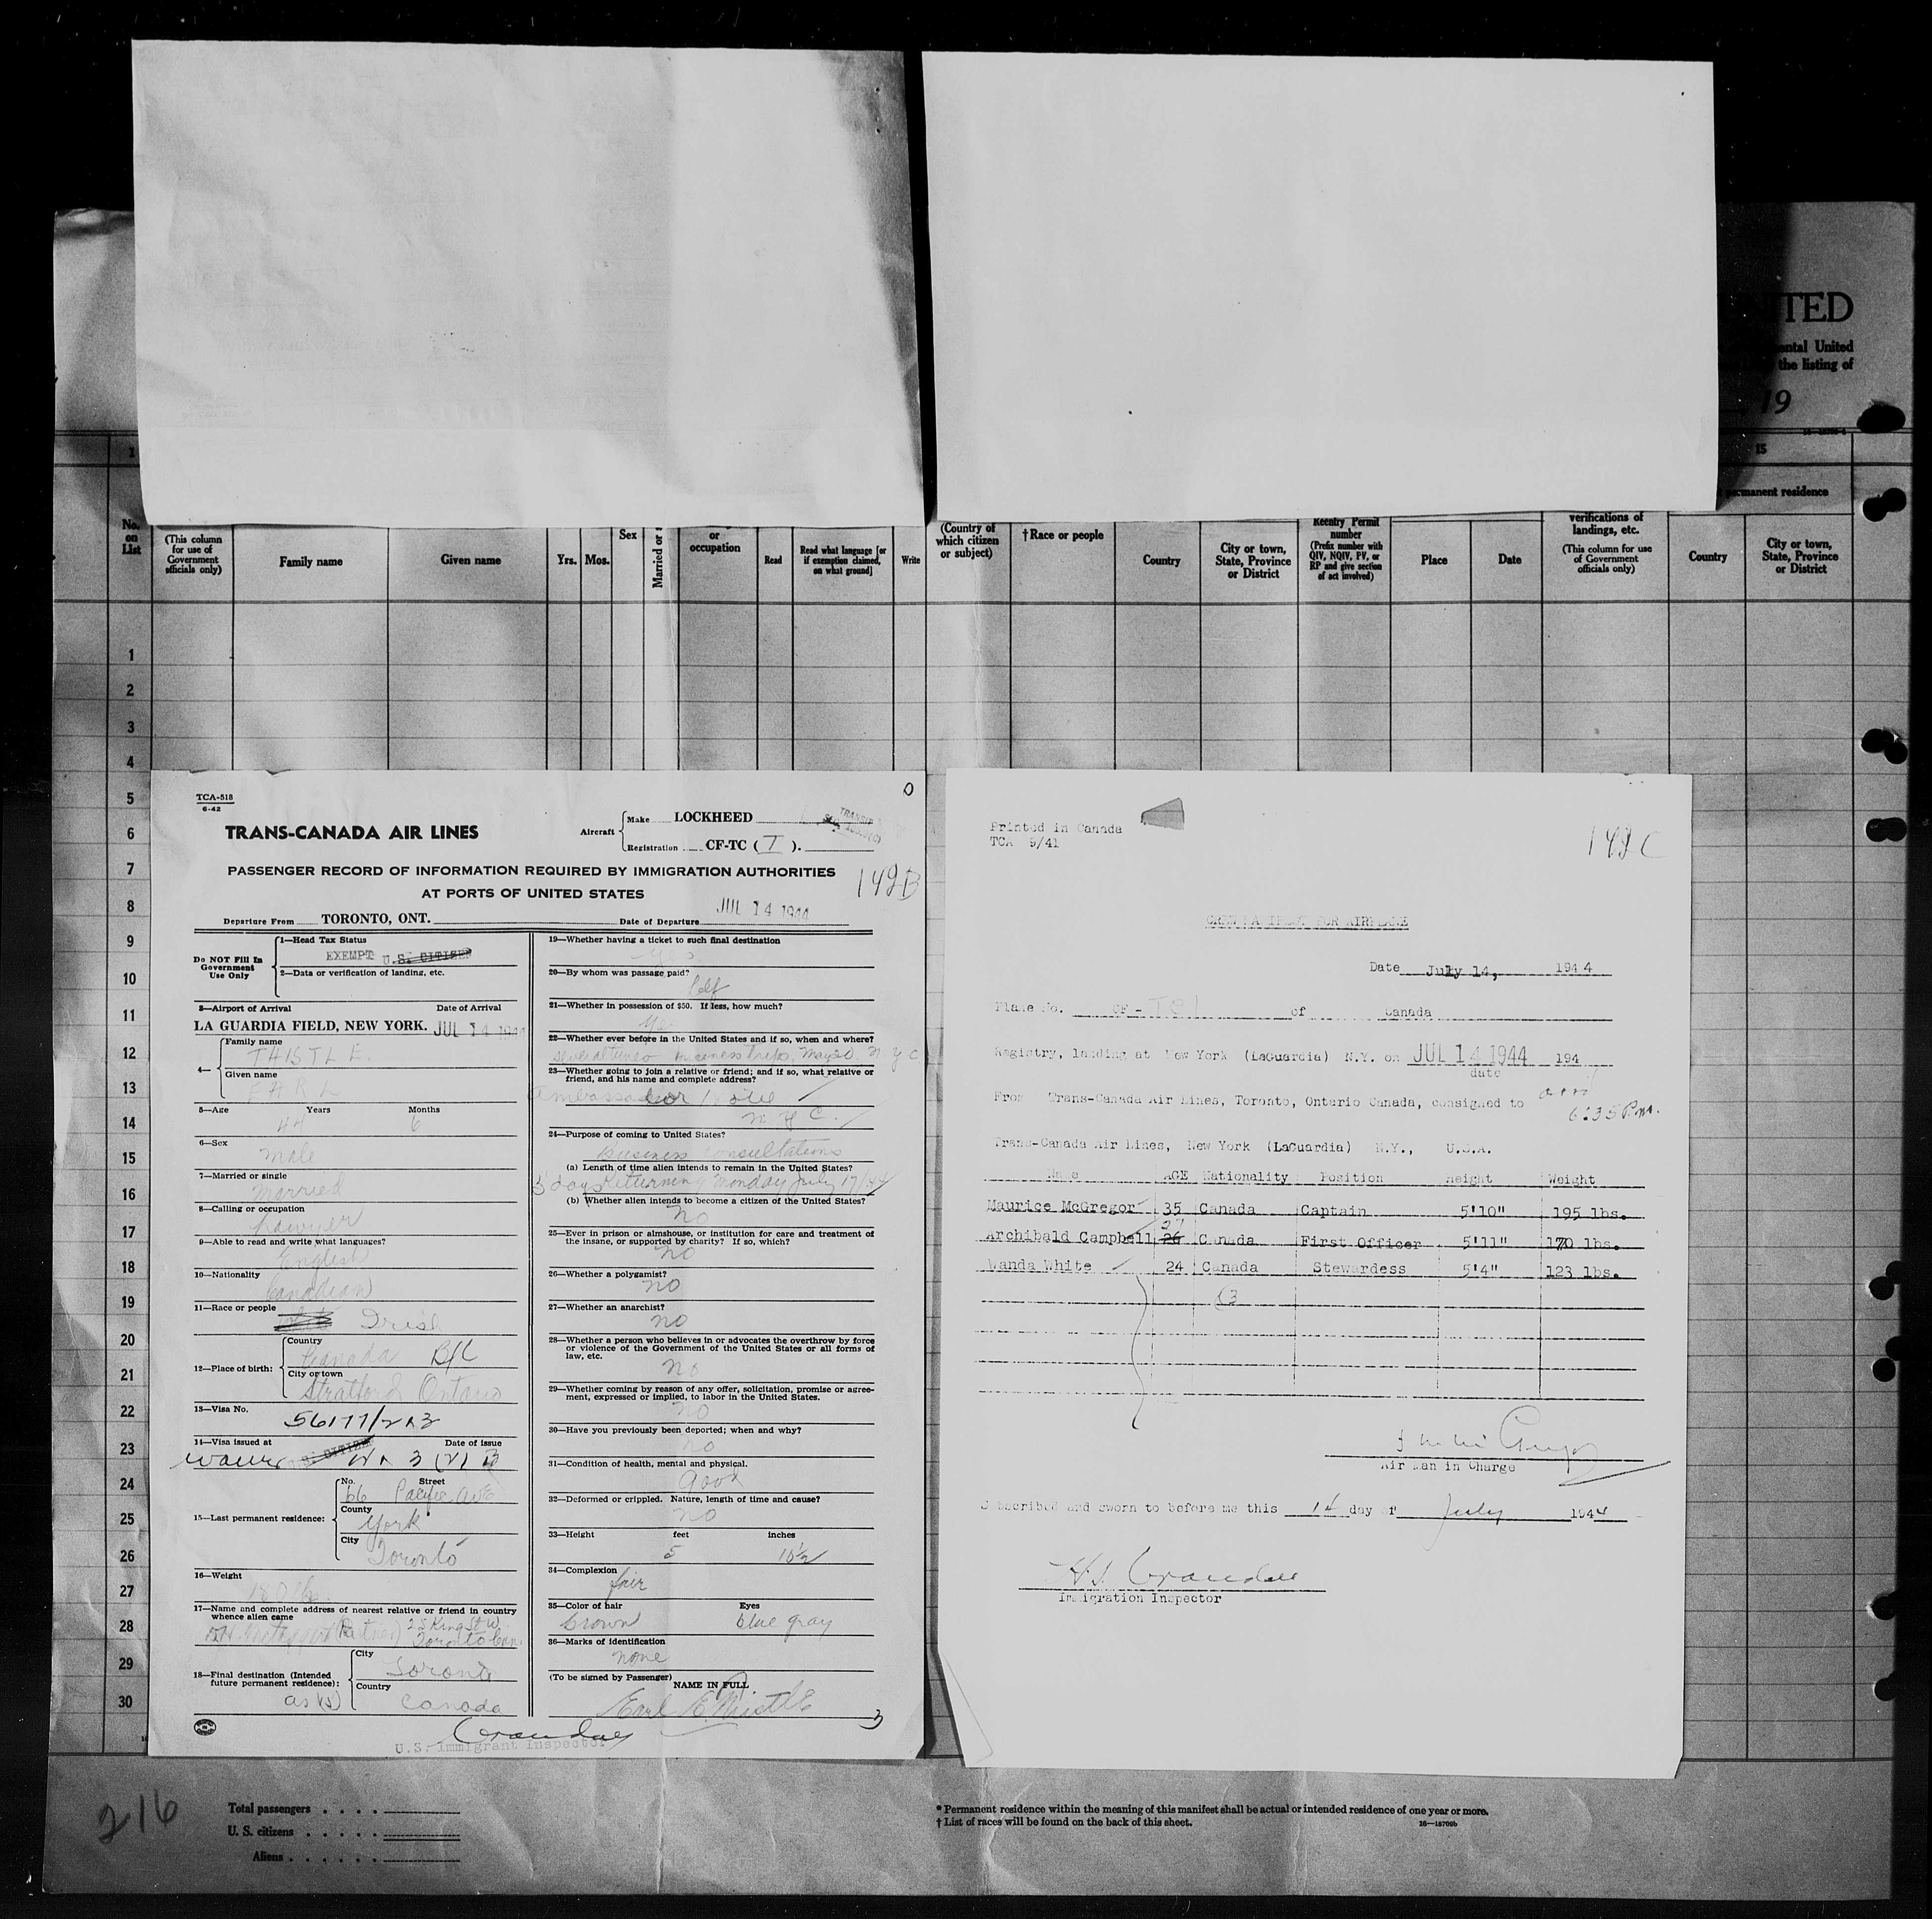 NITED
ental United
the listing of
19
1
15
permanent residence
No. on List
(This column for use of Government officials only)
Family name
Given name
Yrs.
Mos.
Sex
Married or s
or occupation
Read
Read what language [or if exemption claimed, on what ground]
Write
(Country of which citizen or subject)
†Race or people
Country
City or town, State, Province or District
Reentry Permit number
(Prefix number with QIV, NQIV, PV, or RP and give section of act involved)
Place
Date
verifications of landings, etc.
(This column for use of Government officials only)
Country
City or town, State, Province or District
1
2
3
4
5
6
7
8
9
10
11
12
13
14
15
16
17
18
19
20
21
22
23
24
25
26
27
28
29
30
TCA-518
6-42
TRANS-CANADA AIR LINES
Aircraft
Make LOCKHEED
Registration CF-TC ( T ).
PASSENGER RECORD OF INFORMATION REQUIRED BY IMMIGRATION AUTHORITIES
AT PORTS OF UNITED STATES
149B
Departure From TORONTO, ONT.
Date of Departure JUL 14 1944
Do NOT Fill In Government Use Only
1—Head Tax Status
EXEMPT U.S. CITIZEN
2—Data or verification of landing, etc.
3—Airport of Arrival Date of Arrival
LA GUARDIA FIELD, NEW YORK. JUL 14 1944
4— Family name
THISTLE.
Given name
EARL
5—Age Years Months
44 6
6—Sex
male
7—Married or single
Married
8—Calling or occupation
Lawyer
9—Able to read and write what languages?
English
10—Nationality
Canadian
11—Race or people
Irish
12—Place of birth:
Country
Canada B/C
City or town
Stratford Ontario
13—Visa No.
56177/213
14—Visa issued at Date of issue
15—Last permanent residence:
No. Street
66 Pacific Ave
County
York
City
Toronto
16—Weight
17—Name and complete address of nearest relative or friend in country
whence alien came
(Partner) 25 King St W
Toronto Can.
18—Final destination (Intended
future permanent residence):
City
Toronto
Country
Canada
19—Whether having a ticket to such final destination
Yes
20—By whom was passage paid?
Self
21—Whether in possession of $50. If less, how much?
Yes
22—Whether ever before in the United States and if so, when and where?
several times business trips, May 20. N Y C
23—Whether going to join a relative or friend; and if so, what relative or
friend, and his name and complete address?
Ambassador Hotel
N Y C.
24—Purpose of coming to United States?
Business Consultations
(a) Length of time alien intends to remain in the United States?
3 days Returning Monday July 17/44
(b) Whether alien intends to become a citizen of the United States?
No
25—Ever in prison or almshouse, or institution for care and treatment of
the insane, or supported by charity? If so, which?
No
26—Whether a polygamist?
No
27—Whether an anarchist?
no
28—Whether a person who believes in or advocates the overthrow by force
or violence of the Government of the United States or all forms of
law, etc.
no
29—Whether coming by reason of any offer, solicitation, promise or agree-
ment, expressed or implied, to labor in the United States.
no
30—Have you previously been deported; when and why?
no
31—Condition of health, mental and physical.
Good
32—Deformed or crippled. Nature, length of time and cause?
no
33—Height feet inches
5 10½
34—Complexion
fair
35—Color of hair Eyes
brown blue gray
36—Marks of identification
none
(To be signed by Passenger)
NAME IN FULL
Earl E. Thistle
3
Crandall
U.S. Immigrant Inspector
Printed in Canada
TCA 9/41
149C
CREW MANIFEST FOR AIRPLANE
Date July 14, 1944
Plane No. CF-TCI of Canada
Registry, landing at New York (LaGuardia) N.Y. on JUL 14 1944 194
date
From Trans-Canada Air Lines, Toronto, Ontario Canada, consigned to
arr
6:35 P.M.
Trans-Canada Air Lines, New York (LaGuardia) N.Y., U.S.A.
Name AGE Nationality Position Height Weight
Maurice McGregor 35 Canada Captain 5'10" 195 lbs.
27
Archibald Campbell 26 Canada First Officer 5'11" 170 lbs.
Wanda White 24 Canada Stewardess 5'4" 123 lbs.
(3
Air Man in Charge
Subscribed and sworn to before me this 14 day of July 1944
H.S. Crandall
Immigration Inspector
216
Total passengers
U. S. citizens
Aliens
* Permanent residence within the meaning of this manifest shall be actual or intended residence of one year or more.
† List of races will be found on the back of this sheet.
16—18709b